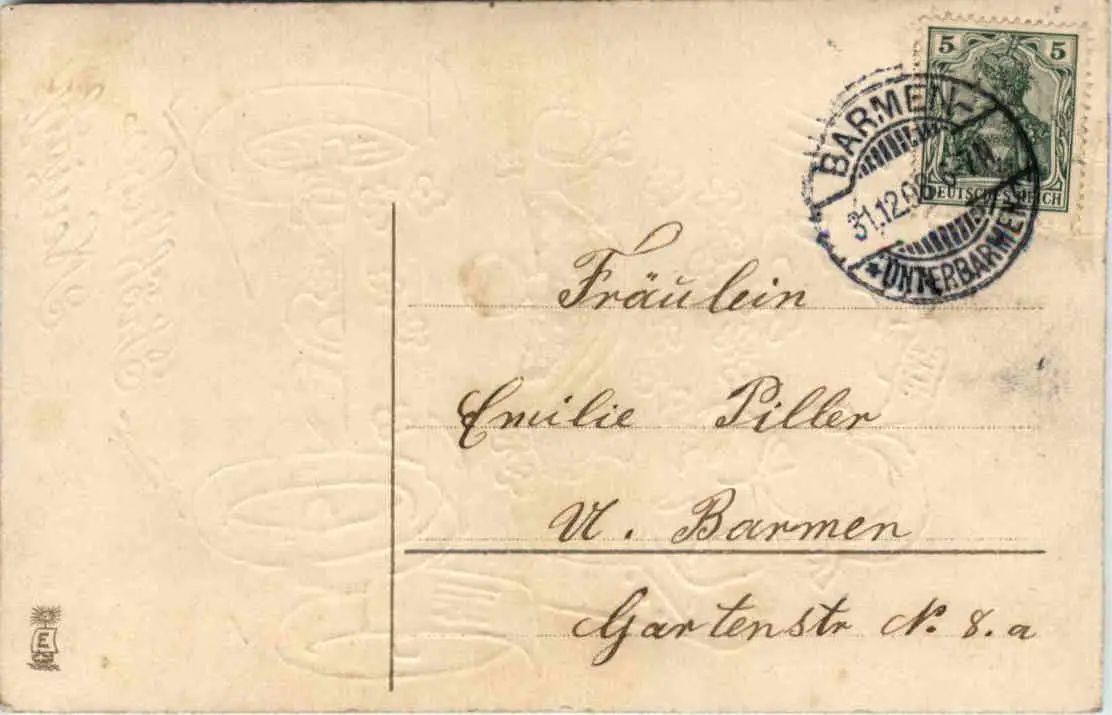 5 5
DEUTSCHES REICH
BARMEN-
31.12.08 6-7N
*UNTERBARMEN
Fräulein
Emilie Piller
U. Barmen
Gartenstr N. 8. a
E